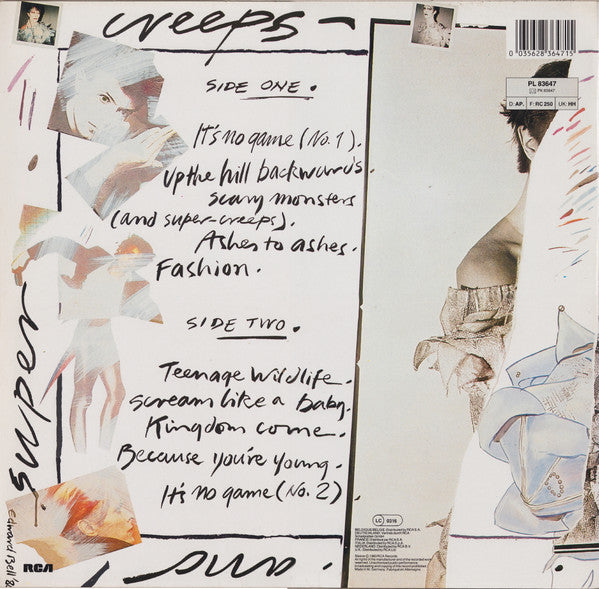 creeps -
0 035628 364715
PL 83647
PK 83647
D: AP. F: RC 250 UK: HH
SIDE ONE.
It's no game (No. 1).
up the hill backwards
scary monsters
(and super-creeps).
Ashes to ashes.
Fashion.
SIDE TWO.
Teenage wildlife.
scream like a baby.
Kingdom come.
Because you're young.
It's no game (No. 2)
super
and
Edward Bell
RCA
LC 0316